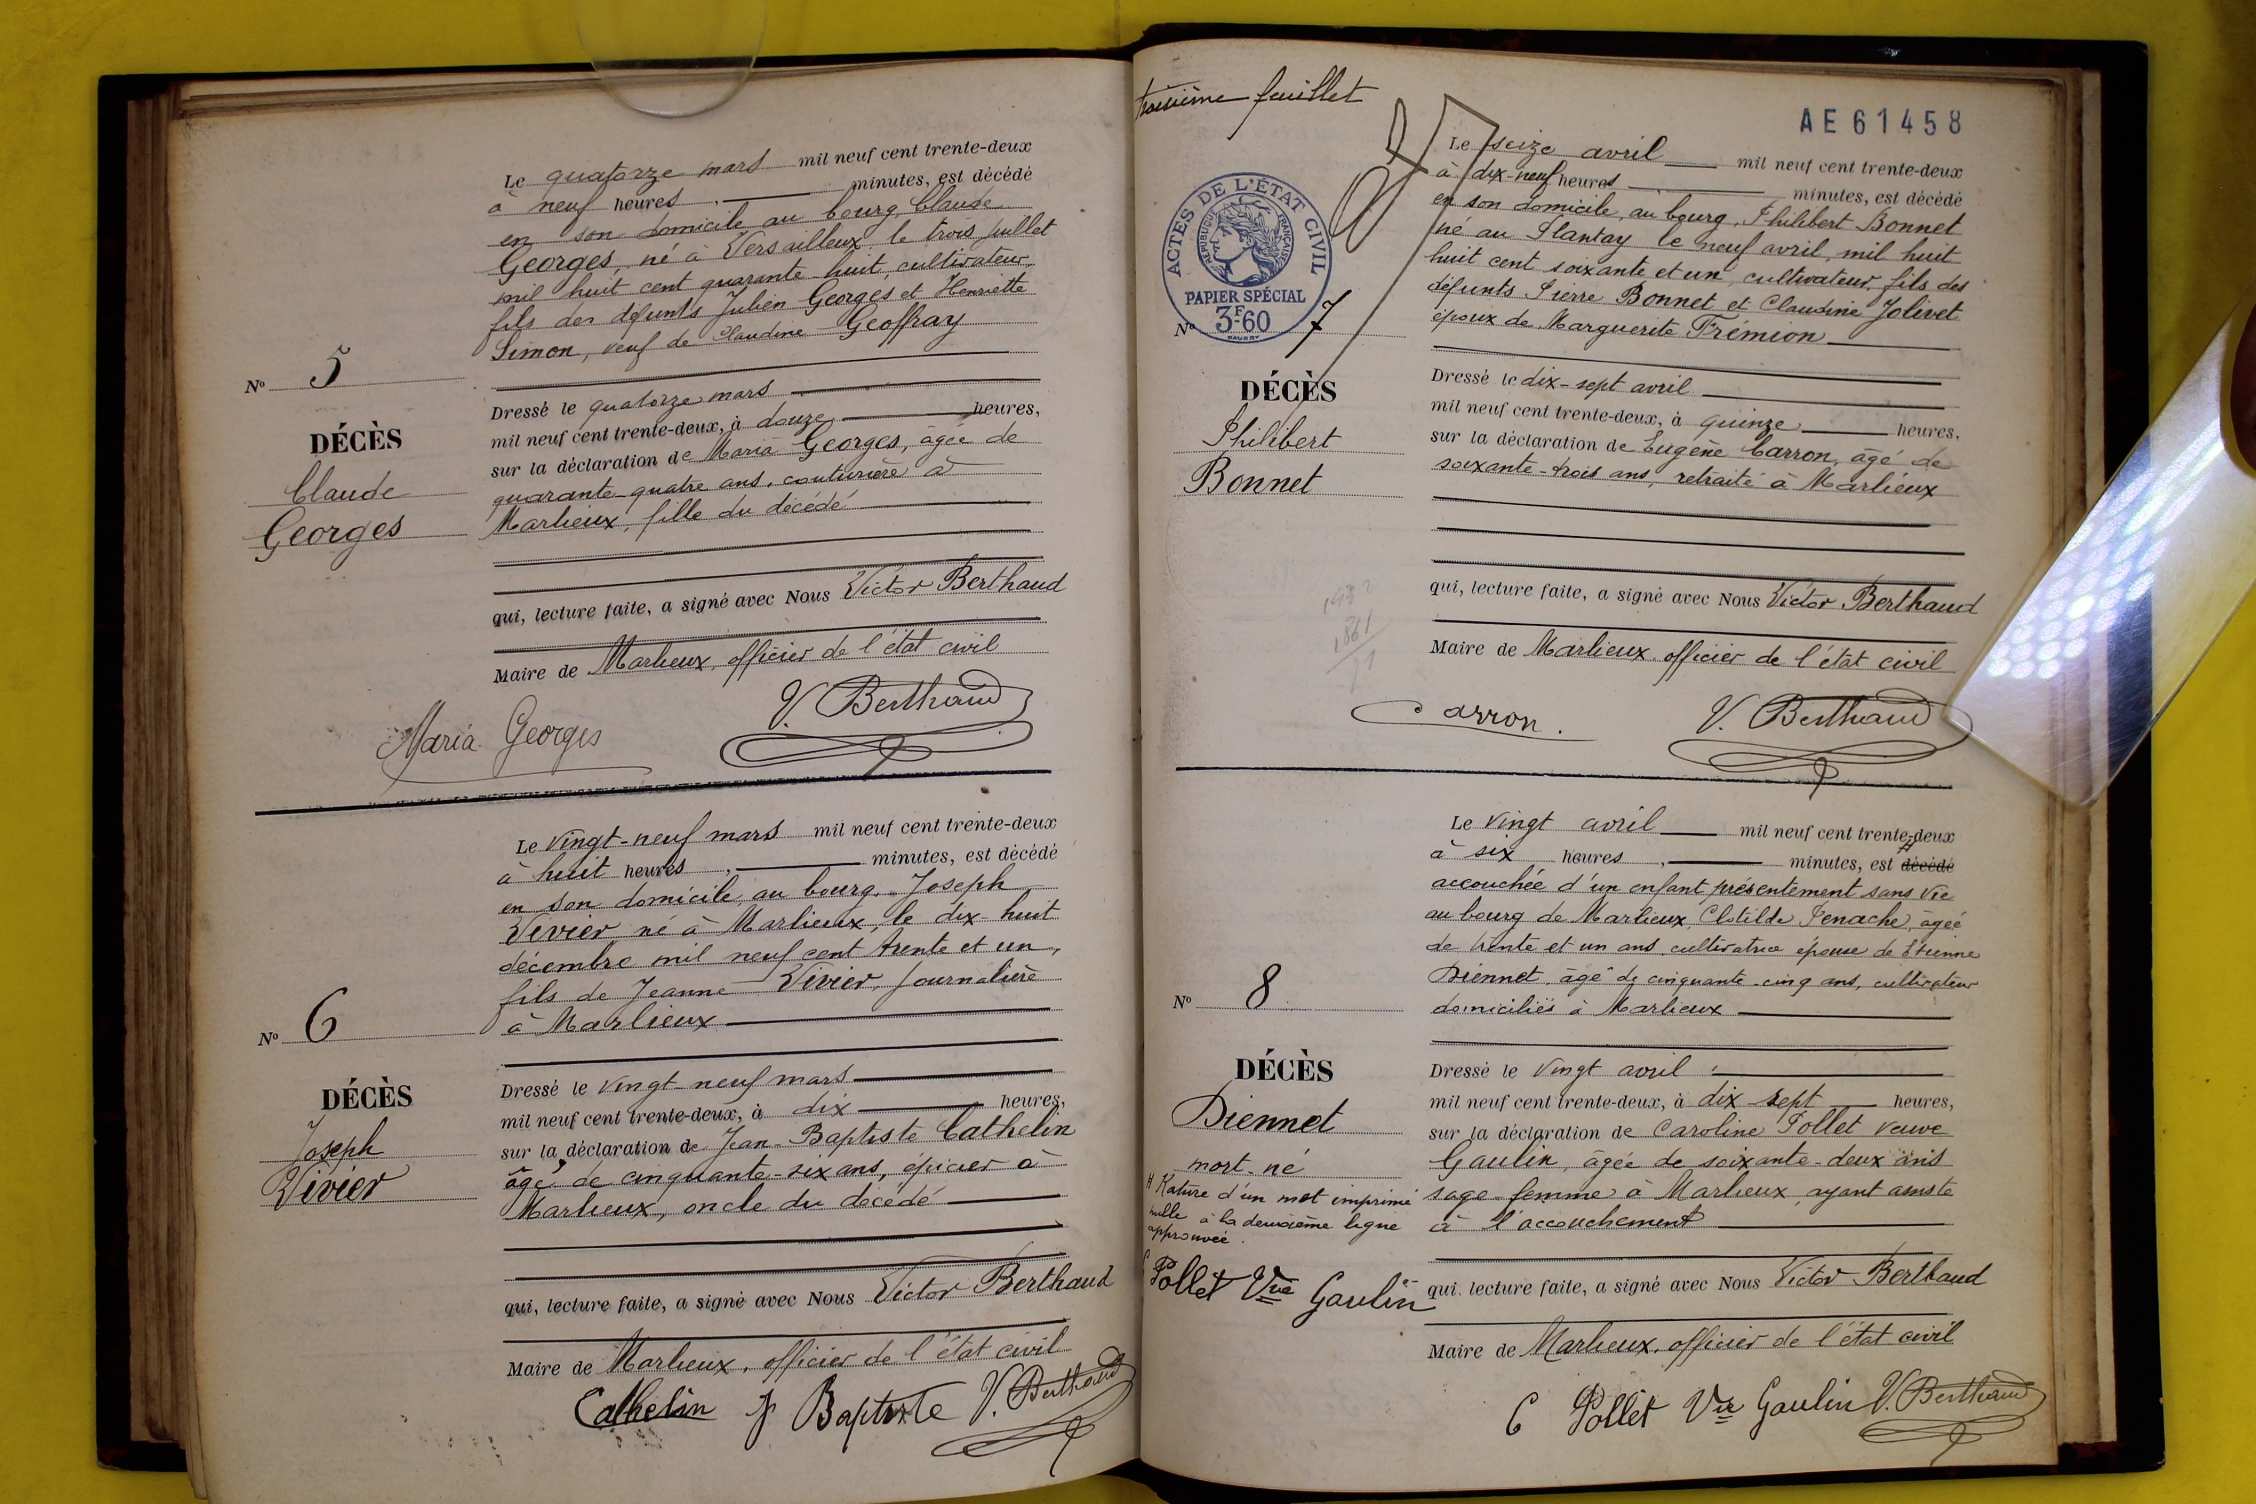 Le quatorze mars mil neuf cent trente-deux
à neuf heures minutes, est décédé
en son domicile au bourg, Claude
Georges, né à Versailleux le trois juillet
mil huit cent quarante huit, cultivateur,
fils des défunts Julien Georges et Henriette
Simon, veuf de Claudine Geoffray
Nº 5
DÉCÈS
Claude
Georges
Dressé le quatorze mars
mil neuf cent trente-deux, à douze heures,
sur la déclaration de Maria Georges, âgée de
quarante-quatre ans, couturière à
Marlieux, fille du décédé
qui, lecture faite, a signé avec Nous Victor Berthaud
Maire de Marlieux, officier de l'état civil
Maria Georges V. Berthaud
Le vingt-neuf mars mil neuf cent trente-deux
à huit heures minutes, est décédé
en son domicile, au bourg, Joseph
Vivier né à Marlieux, le dix-huit
décembre mil neuf cent trente et un,
fils de Jeanne Vivier, journalière
à Marlieux
Nº 6
DÉCÈS
Joseph
Vivier
Dressé le vingt-neuf mars
mil neuf cent trente-deux, à dix heures,
sur la déclaration de Jean-Baptiste Cathelin
âgé de cinquante-six ans, épicier à
Marlieux, oncle du décédé
qui, lecture faite, a signé avec Nous Victor Berthaud
Maire de Marlieux, officier de l'état civil
Cathelin J Baptiste V. Berthaud
troisième feuillet
AE61458
ACTES DE L'ÉTAT CIVIL
RÉPUBLIQUE FRANÇAISE
PAPIER SPÉCIAL
3F60
Le seize avril mil neuf cent trente-deux
à dix-neuf heures minutes, est décédé
en son domicile, au bourg, Philibert Bonnet
né au Plantay le neuf avril, mil huit
huit cent soixante et un, cultivateur, fils des
défunts Pierre Bonnet et Claudine Jolivet
époux de Marguerite Frémion
Nº 7
DÉCÈS
Philibert
Bonnet
Dressé le dix-sept avril
mil neuf cent trente-deux, à quinze heures,
sur la déclaration de Eugène Carron, âgé de
soixante-trois ans, retraité à Marlieux
qui, lecture faite, a signé avec Nous Victor Berthaud
1861
71
Maire de Marlieux officier de l'état civil
Carron. V. Berthaud
Le vingt avril mil neuf cent trente-deux
à six heures minutes, est décédé
accouchée d'un enfant présentement sans vie
au bourg de Marlieux, Clotilde Penache, âgée
de trente et un ans, cultivatrice épouse de Etienne
Diennet, âgé de cinquante-cinq ans, cultivateur
domiciliés à Marlieux
Nº 8
DÉCÈS
Diennet
mort-né
Rature d'un mot imprimé
nulle à la deuxième ligne
approuvée.
C Pollet Vve Gaulin
Dressé le vingt avril
mil neuf cent trente-deux, à dix-sept heures,
sur la déclaration de Caroline Pollet veuve
Gaulin, âgée de soixante-deux ans
sage-femme à Marlieux, ayant assisté
à l'accouchement
qui, lecture faite, a signé avec Nous Victor Berthaud
Maire de Marlieux, officier de l'état civil
C Pollet Vve Gaulin V. Berthaud